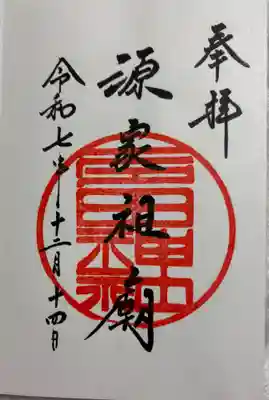 奉拝
源家祖廟
令和七年十二月十四日